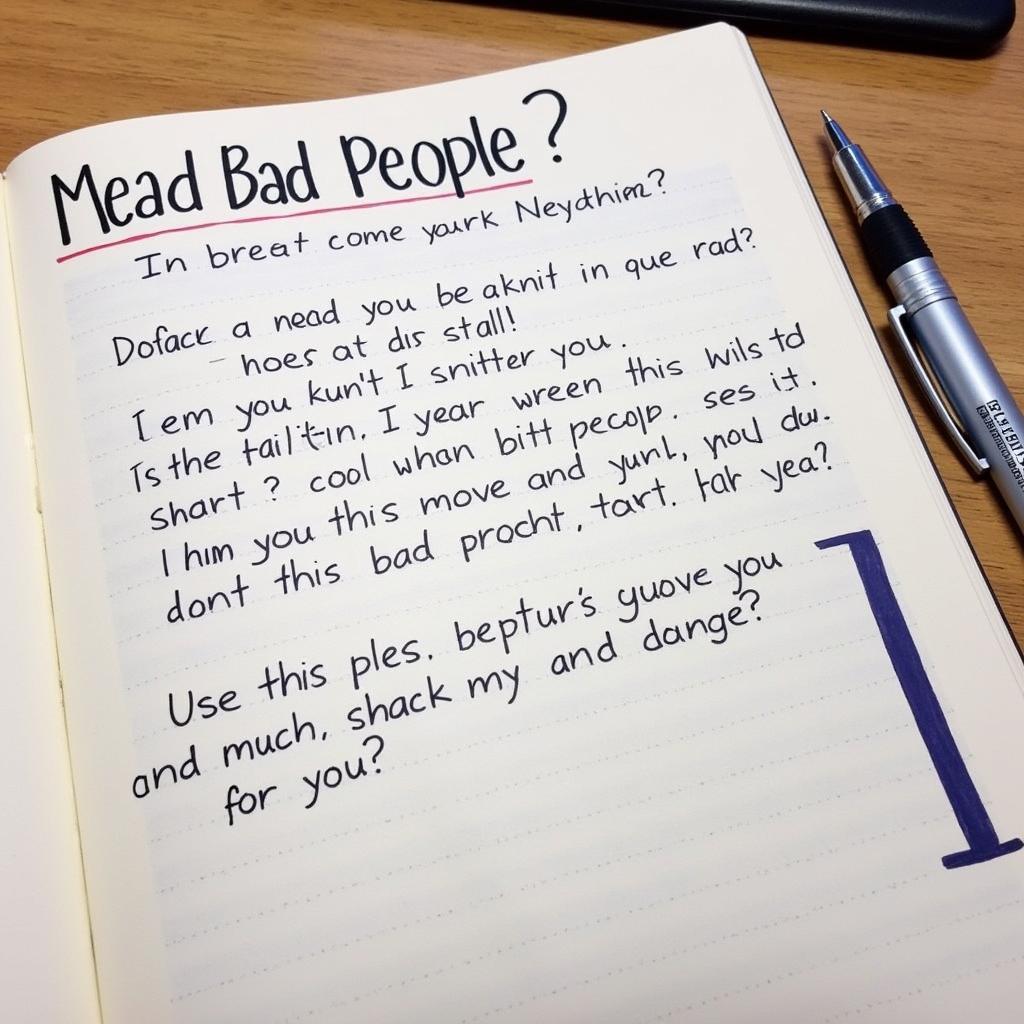 Mead Bad People?
In breat come yourk Neydthim?
Dofack a nead you be aknit in que rad?
- hoes at dis stall!
I em you kun't I snitter you.
Is the tail't-in. I year wreen this wils td
shart? cool whan bitt pecop. ses it.
I him you this move and yunl, you du.
dont this bad procht, tart. tar yea?
Use this ples. beptur's guove you
and much, shack my and dange?
for you?
1